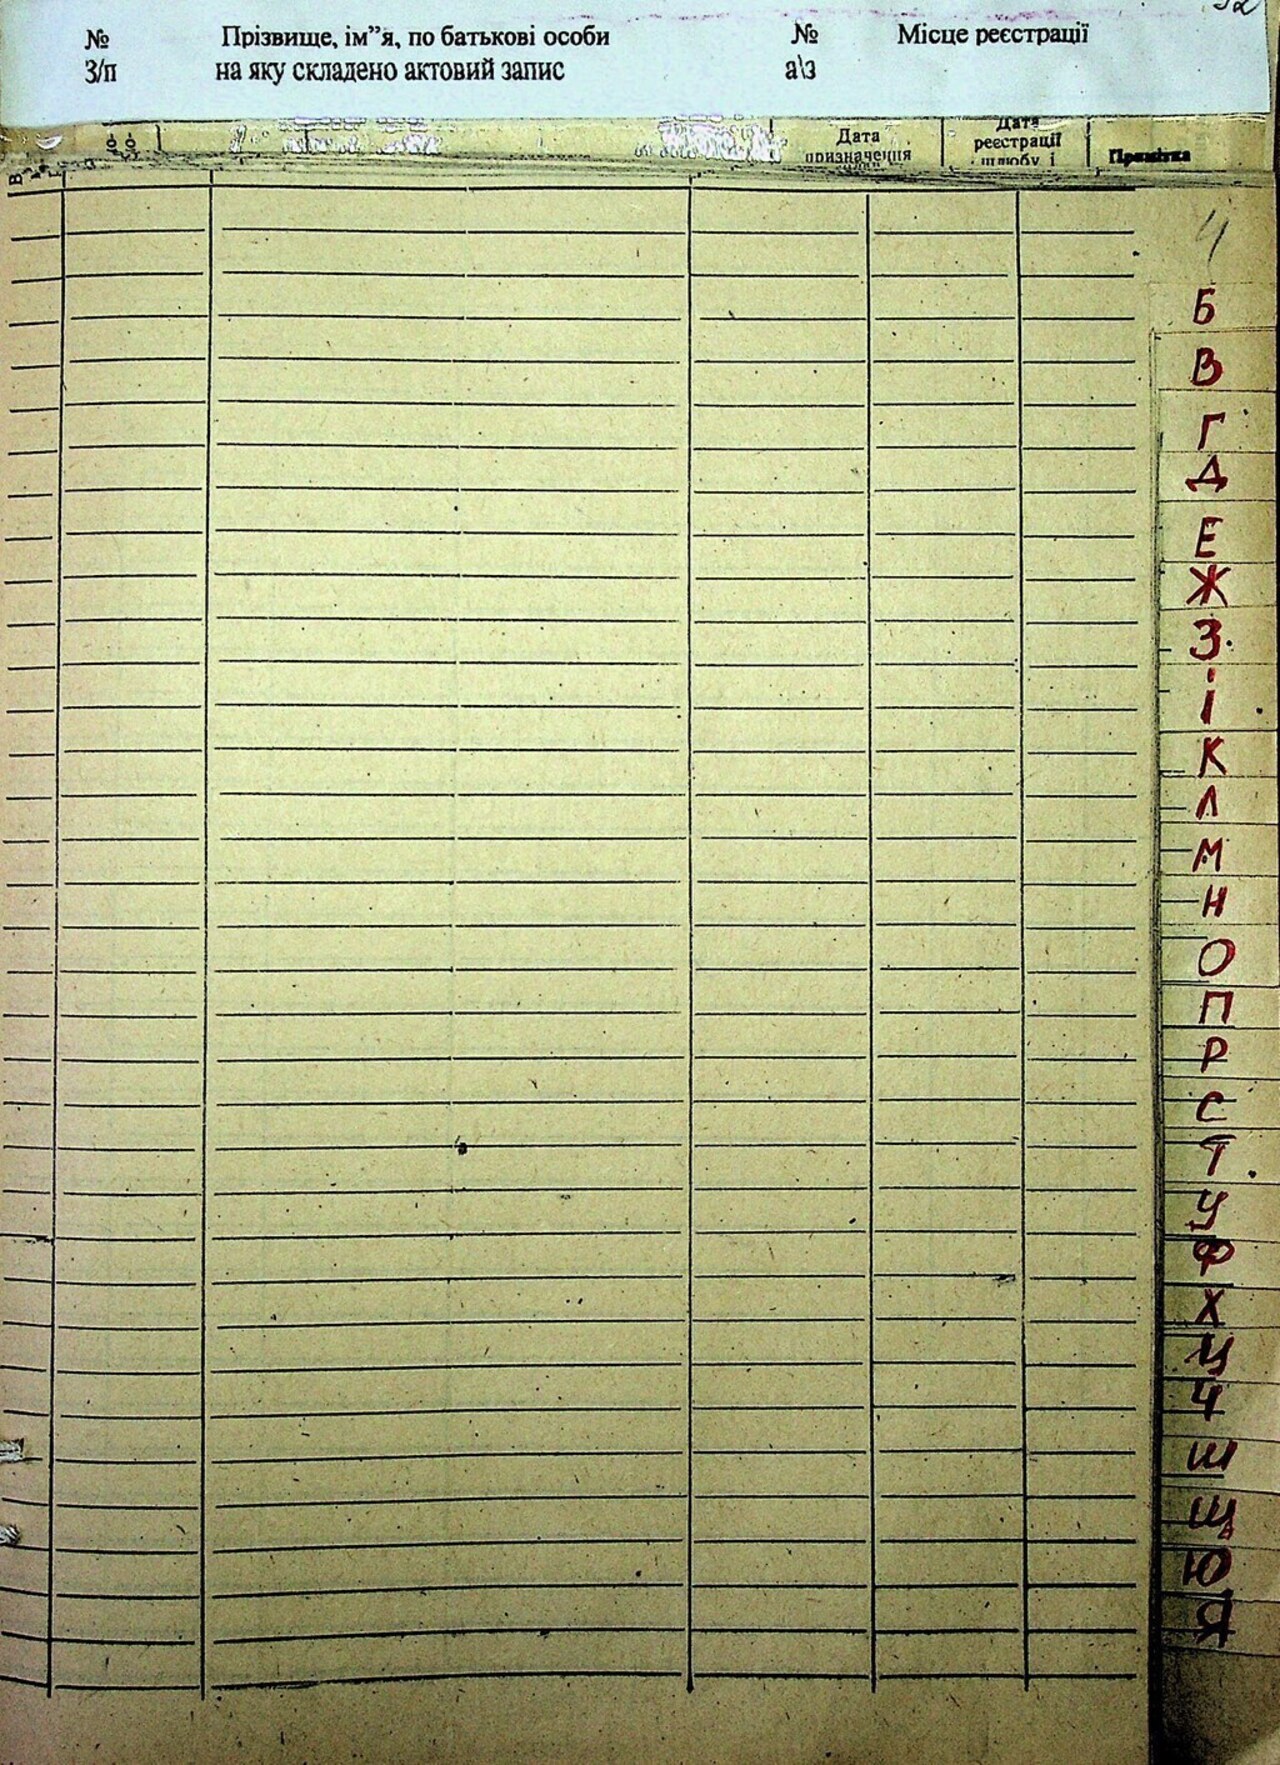 № Прізвище, ім”я, по батькові особи № Місце реєстрації
З/п на яку складено актовий запис а\з
Дата
призначення
Дата
реєстрації
шлюбу і
Примітка
4
Б
В
Г
Д
Е
Ж
З
І
К
Л
М
Н
О
П
Р
С
Т
У
Ф
Х
Ц
Ч
Ш
Щ
Ю
Я